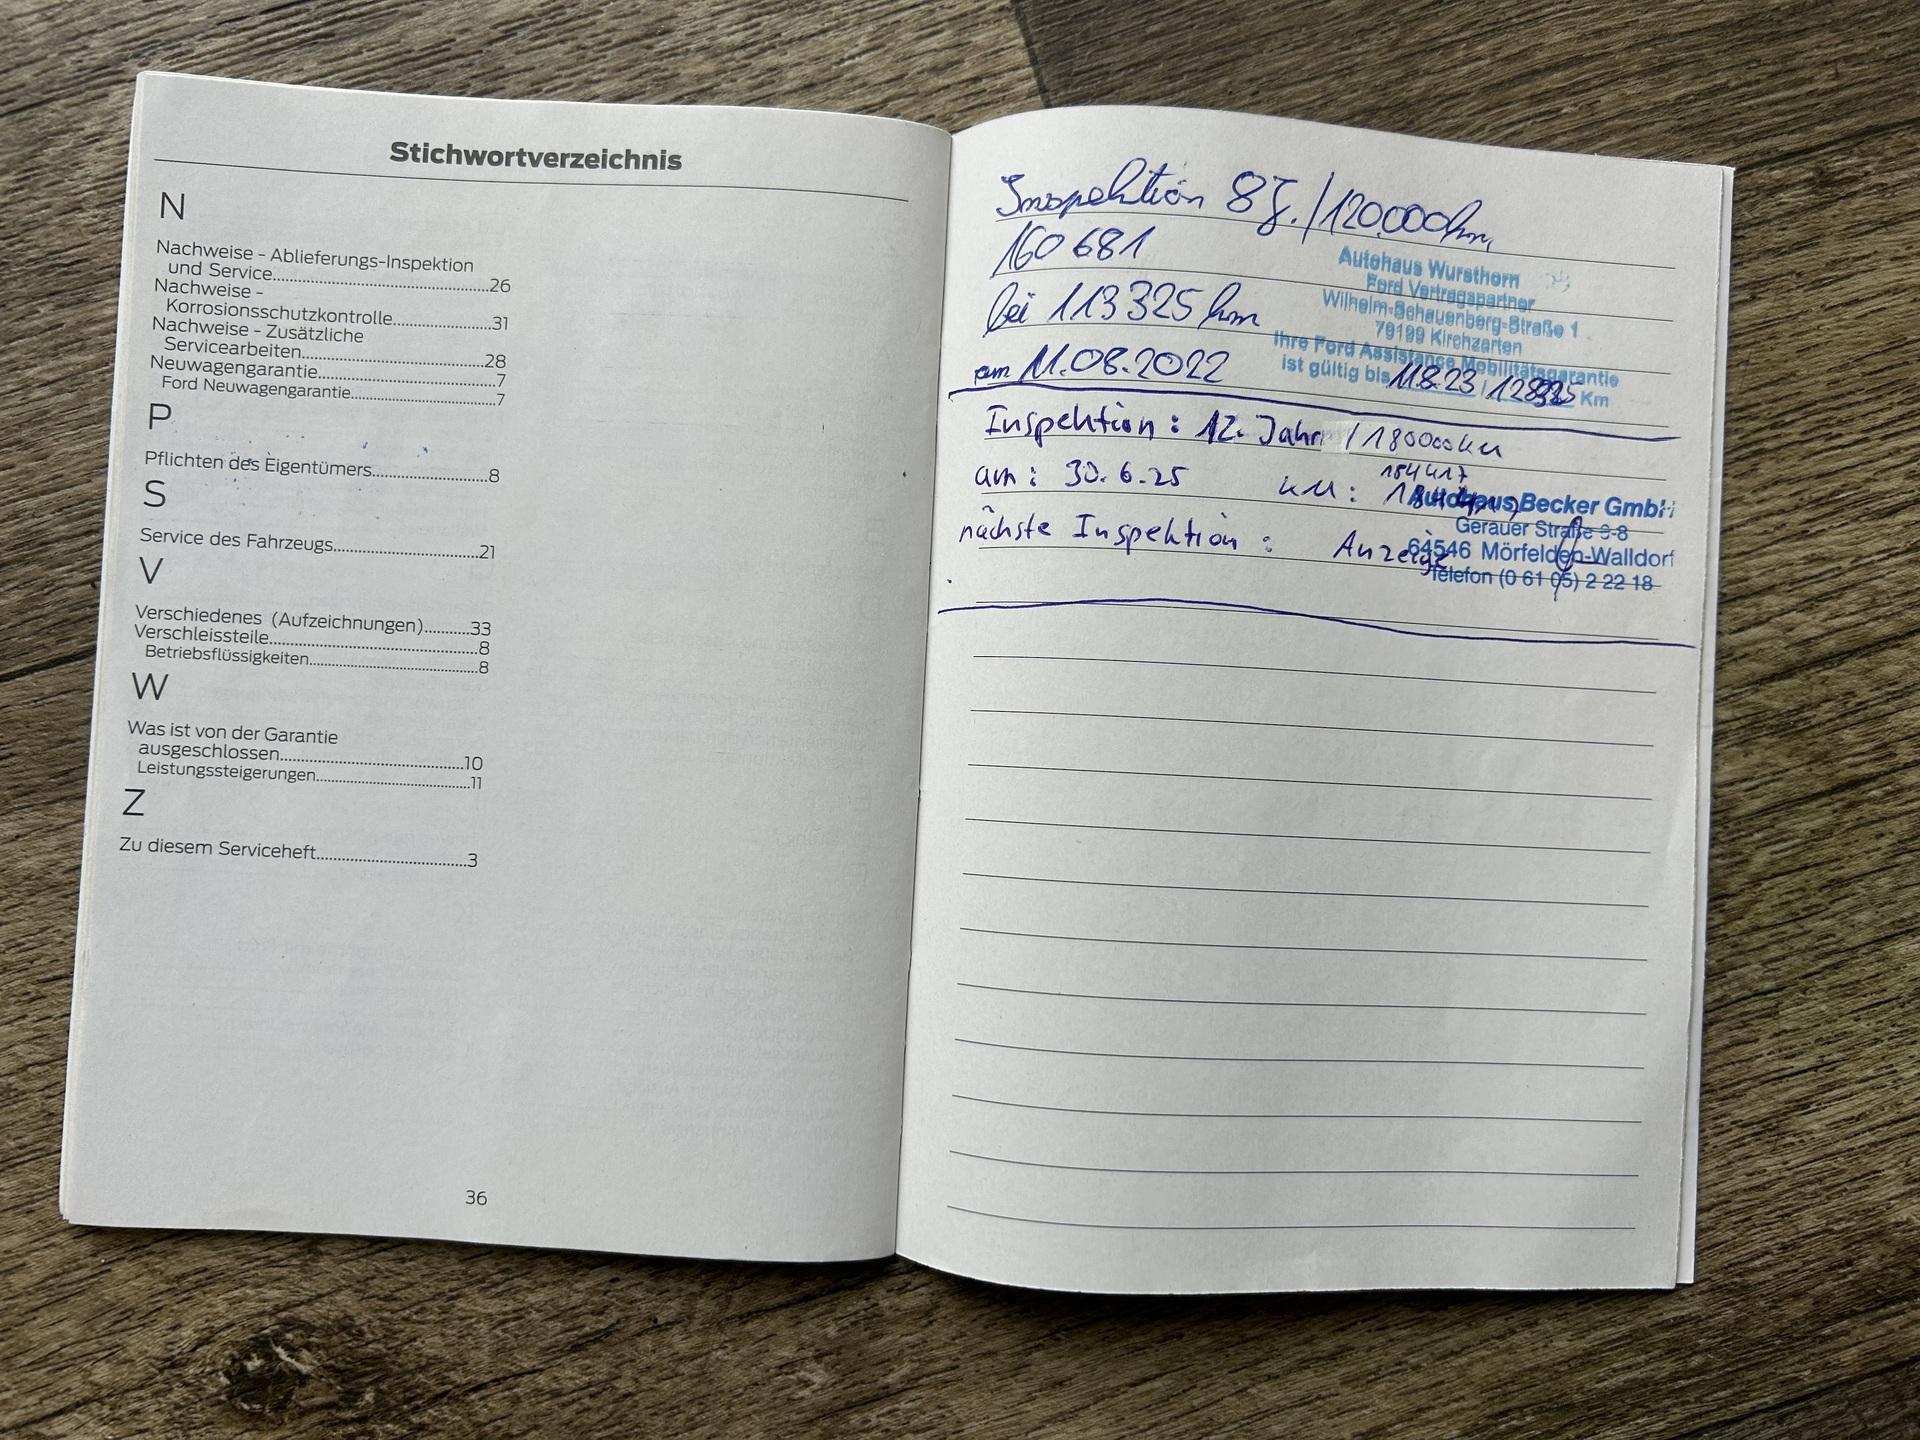 Stichwortverzeichnis
N
Nachweise - Ablieferungs-Inspektion
und Service....................................................26
Nachweise -
Korrosionsschutzkontrolle........................31
Nachweise - Zusätzliche
Servicearbeiten..............................................28
Neuwagengarantie..........................................7
Ford Neuwagengarantie...................................7
P
Pflichten des Eigentümers............................8
S
Service des Fahrzeugs...................................21
V
Verschiedenes (Aufzeichnungen)...........33
Verschleissteile..................................................8
Betriebsflüssigkeiten.........................................8
W
Was ist von der Garantie
ausgeschlossen............................................10
Leistungssteigerungen....................................11
Z
Zu diesem Serviceheft....................................3
36
Inspektion 8J./120.000km
160681
bei 113325 km
am 11.08.2022
Autohaus Wursthorn
Ford Vertragspartner
Wilhelm-Schauenberg-Straße 1
79199 Kirchzarten
Ihre Ford Assistance Mobilitätsgarantie
ist gültig bis 11.8.23 / Km
Inspektion : 12. Jahr / 180000km
am : 30.6.25 KM :
nächste Inspektion : Anzeige
Autohaus Becker GmbH
Gerauer Straße
64546 Mörfelden-Walldorf
Telefon (0 61 05) 2 22 18